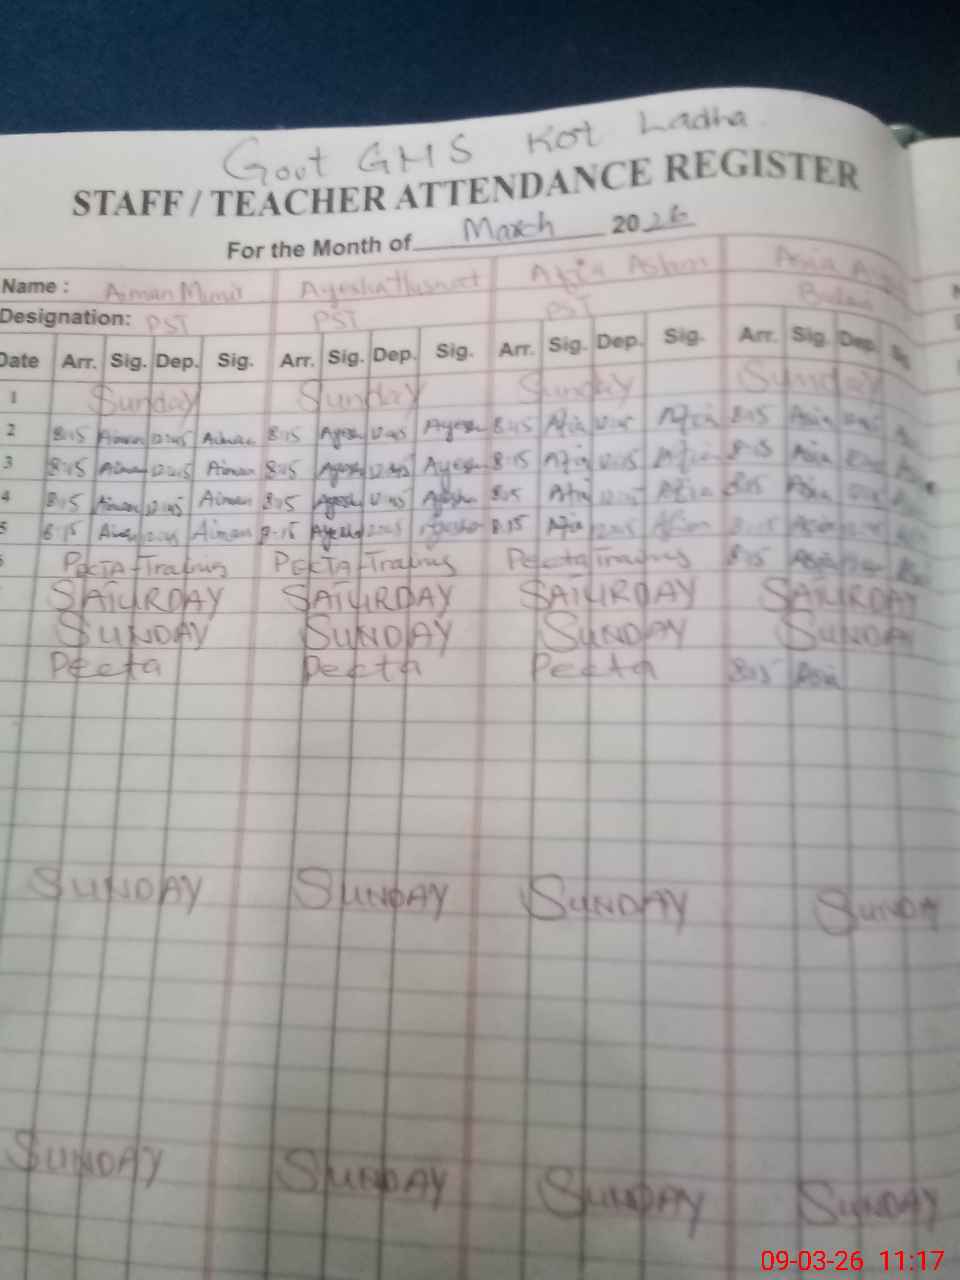 Govt GHS Kot Ladha
STAFF / TEACHER ATTENDANCE REGISTER
For the Month of March 2026
Name : Aiman Munir Ayesha Afia Aslam Asia
Designation: PST PST PST
Date Arr. Sig. Dep. Sig. Arr. Sig. Dep. Sig. Arr. Sig. Dep. Sig. Arr. Sig. Dep.
1 Sunday Sunday Sunday Sunday
2 8:15 Aiman 12:45 Aiman 8:15 Ayesha 12:45 Ayesha 8:15 Afia 12:45 Afia 8:15 Asia
3 8:15 Aiman 12:45 Aiman 8:15 Ayesha 12:45 Ayesha 8:15 Afia 12:45 Afia 8:15 Asia
4 8:15 Aiman 12:45 Aiman 8:15 Ayesha 12:45 Ayesha 8:15 Afia 12:45 Afia 8:15 Asia
5 8:15 Aiman 12:45 Aiman 8:15 Ayesha 12:45 Ayesha 8:15 Afia 12:45 8:15 Asia
PECTA Training PECTA Training Pecta Training 8:15 Asia
SATURDAY SATURDAY SATURDAY SATURDAY
SUNDAY SUNDAY SUNDAY SUNDAY
Pecta Pecta Pecta 8:15 Asia
SUNDAY SUNDAY SUNDAY SUNDAY
SUNDAY SUNDAY SUNDAY SUNDAY
09-03-26 11:17